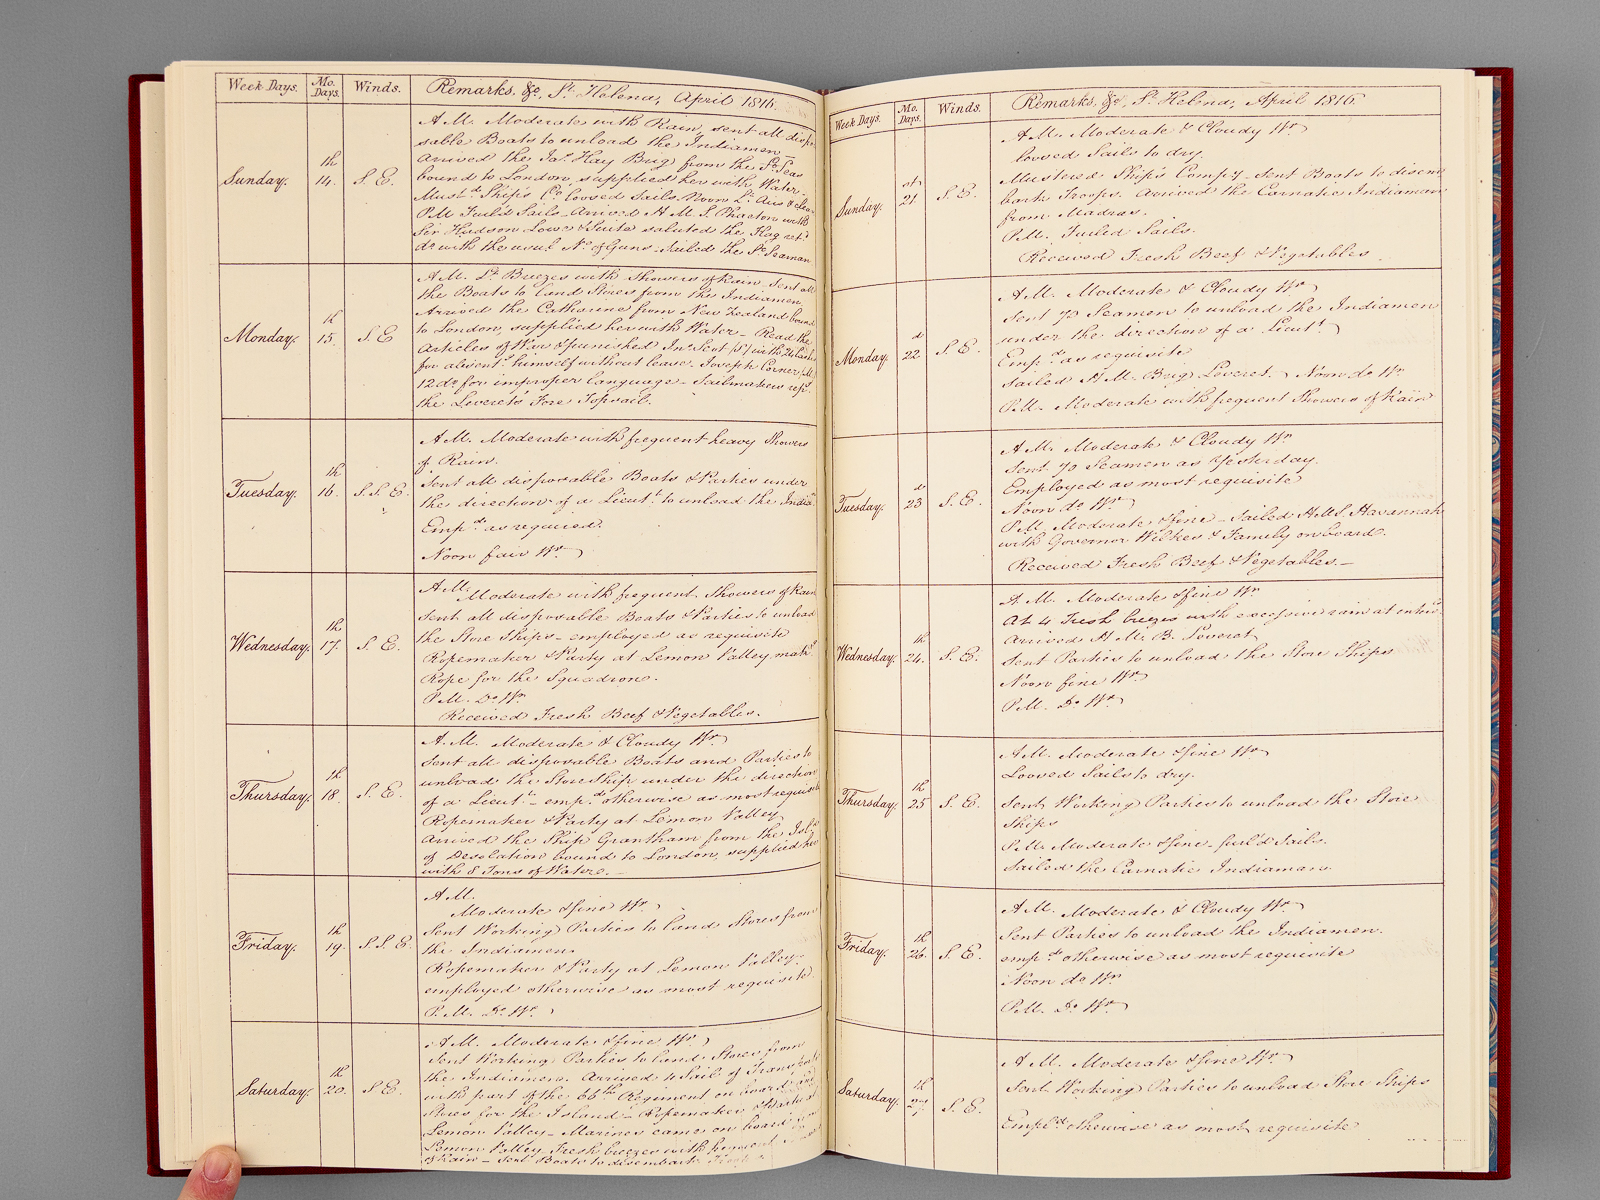 Week Days. Mo. Days. Winds. Remarks, &c., St. Helena, April 1816.
Sunday. 14th. S. E.
A M. Moderate with Rain, sent all dispo
sable Boats to unload the Indiamen
Arrived the Jas. Hay Brig from the So. Seas
bound to London, supplied her with Water.
Mustd. Ship's Co. loosed Sails. Noon Lt. Airs & clear
PM Furl'd Sails - Arrived H. M. S. Phaeton with
Ser Hudson Lowe & Suite saluted the Flag retd.
do. with the usul No. of Guns. Sailed the So. Seaman
Monday. 15th. S. E
A M. Lt. Breezes with Showers of Rain. Sent all
the Boats to land Stores from the Indiamen
Arrived the Catherine from New Zealand bound
to London, supplied her with Water - Read the
Articles of War & punished Jno. Scot (S) with 24 lashes
for absentg. himself without leave. Joseph Corner (M)
12 do. for improper language - Sailmakers repg.
the Leveret's Fore Topsail.
Tuesday. 16th. S. S. E.
A M. Moderate with frequent heavy Showers
of Rain.
Sent all disposable Boats & Parties under
the direction of a Lieutt. to unload the Indian
Empd. as required.
Noon fair Wr.
Wednesday. 17th. S. E.
A M. Moderate with frequent Showers of Rain
Sent all disposable Boats & Parties to unload
the Store Ships - employed as requisite
Ropemaker & Party at Lemon Valley makg.
Rope for the Squadron.
P M. Do. Wr.
Received Fresh Beef & Vegetables.
Thursday. 18th. S. E.
A. M. Moderate & Cloudy Wr.
Sent all disposable Boats and Parties to
unload the Store Ship under the direction
of a Lieutt. - empd. otherwise as most requisite
Ropemaker & Party at Lemon Valley
Arrived the Ship Grantham from the Isle
of Desolation bound to London, supplied her
with 8 Tons of Water. -
Friday. 19th. S. S. E.
A M.
Moderate & fine Wr.
Sent Working Parties to land Stores from
the Indiamen
Ropemaker & Party at Lemon Valley
employed otherwise as most requisite
P. M. Do. Wr.
Saturday. 20th. S E.
A M. Moderate & fine Wr.
Sent Working Parties to land Stores from
the Indiamen. Arrived 4 Sail of Transports
with part of the 66th. Regiment on board and
Stores for the Island - Ropemaker & Party at
Lemon Valley - Marines came on board from
Lemon Valley Fresh breezes with frequent
of Rain - Sent Boats to disembark
Week Days. Mo. Days. Winds. Remarks, &c., St. Helena, April 1816.
Sunday. 21st. S. E.
A M. Moderate & Cloudy Wr.
loosed Sails to dry.
Mustered Ship's Compy. Sent Boats to disem
bark Troops. Arrived the Carnatic Indiaman
from Madras.
P M. Furled Sails.
Received Fresh Beef & Vegetables.
Monday. 22d. S. E.
A M. Moderate & Cloudy Wr.
Sent 70 Seamen to unload the Indiamen
under the direction of a Lieutt.
Empd. as requisite
Sailed H. M. Brig Leveret. Noon do. Wr
P M. Moderate with frequent Showers of Rain
Tuesday. 23d. S. E.
A M. Moderate & Cloudy Wr
Sent 70 Seamen as Yesterday.
Employed as most requisite
Noon do. Wr
P M. Moderate & fine - Sailed H M S Havannah
with Governor Wilkes & Family on board.
Received Fresh Beef & Vegetables. -
Wednesday. 24th. S. E.
A M. Moderate & fine Wr
At 4 Fresh breezes with excessive rain at
Arrived H. M. B. Leveret
Sent Parties to unload the Store Ships
Noon fine Wr
P M. Do. Wr
Thursday. 25th S. E.
A M. Moderate & fine Wr
Loosed Sails to dry.
Sent Working Parties to unload the Store
Ships
P M. Moderate & fine - furl'd Sails.
Sailed the Carnatic Indiaman
Friday. 26th. S. E.
A M. Moderate & Cloudy Wr
Sent Parties to unload the Indiamen.
empd. otherwise as most requisite
Noon do. Wr
P M. Do. Wr
Saturday. 27th S. E.
A M. Moderate & fine Wr
Sent Working Parties to unload Store Ships
Empld. otherwise as most requisite